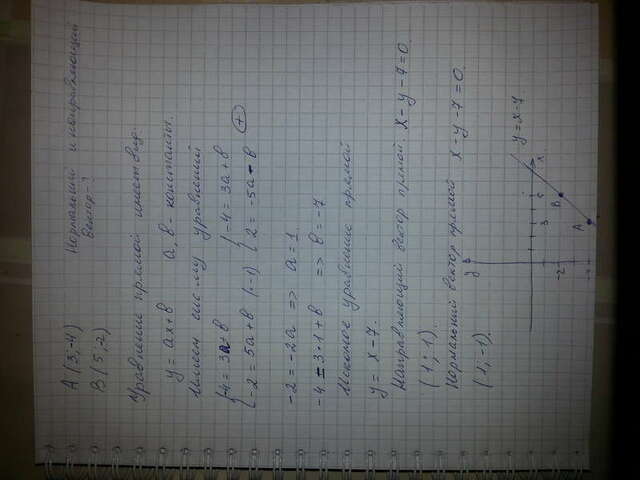 A (3; -4) Нормальный и направляющий
B (5; -2) Вектор-?
Уравнение прямой имеет вид
y = ax+b a, b - константы.
Решаем сис-му уравнений
{-4 = 3a+b {-4 = 3a+b
{-2 = 5a+b (-1) {2 = -5a-b (+)
-2 = -2a => a = 1
-4 = 3·1+b => b = -7
Искомое уравнение прямой
y = x-7.
Направляющий вектор прямой. x-y-7=0.
(1; 1).
Нормальный вектор прямой x-y-7=0.
(1, -1).
y
y=x-7
x
3
5
-2
-4
A
B